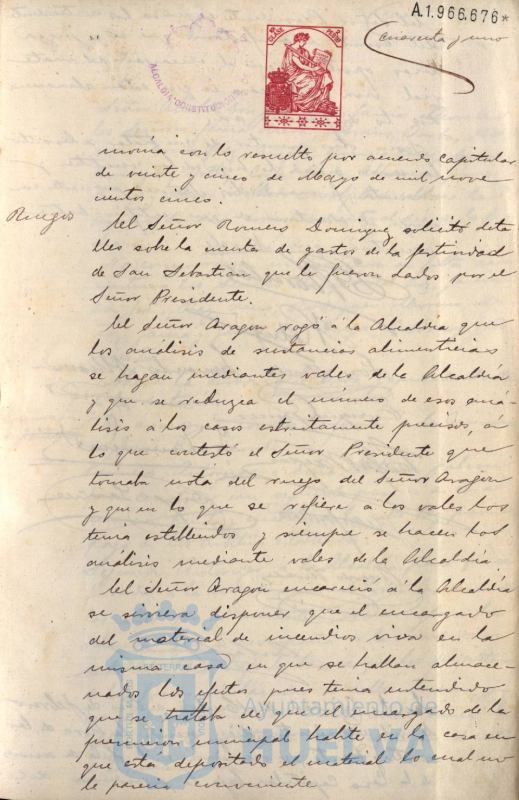 A.1.966.676*
cuarenta y uno
CLASE
ALCALDIA CONSTITUCIONAL
monia con lo resuelto por acuerdo capitular
de veinte y cinco de Mayo de mil nove
cientos cinco.
Ruegos
El Señor Romero Dominguez solicitó deta
lles sobre la cuenta de gastos de la festividad
de San Sebastian que le fueron dados por el
Señor Presidente.
El Señor Aragon rogó á la Alcaldia que
los análisis de sustancias alimenticias
se hagan mediantes vales de la Alcaldia
y que se reduzca el número de esos aná-
lisis á los casos estrictamente precisos, á
lo que contestó el Señor Presidente que
tomaba nota del ruego del Señor Aragon
y que en lo que se refiere á los vales los
tenia establecidos y siempre se hacen los
análisis mediante vales de la Alcaldia.
El Señor Aragon encareció á la Alcaldia
se sirviera disponer que el encargado
del material de incendios viva en la
misma casa en que se hallan almace-
nados los efectos pues tenia entendido
que se trataba de que el encargado de la
habite en la casa en
que esta depositado el material lo cual no
le parecia conveniente.
Ayuntamiento de
HUELVA